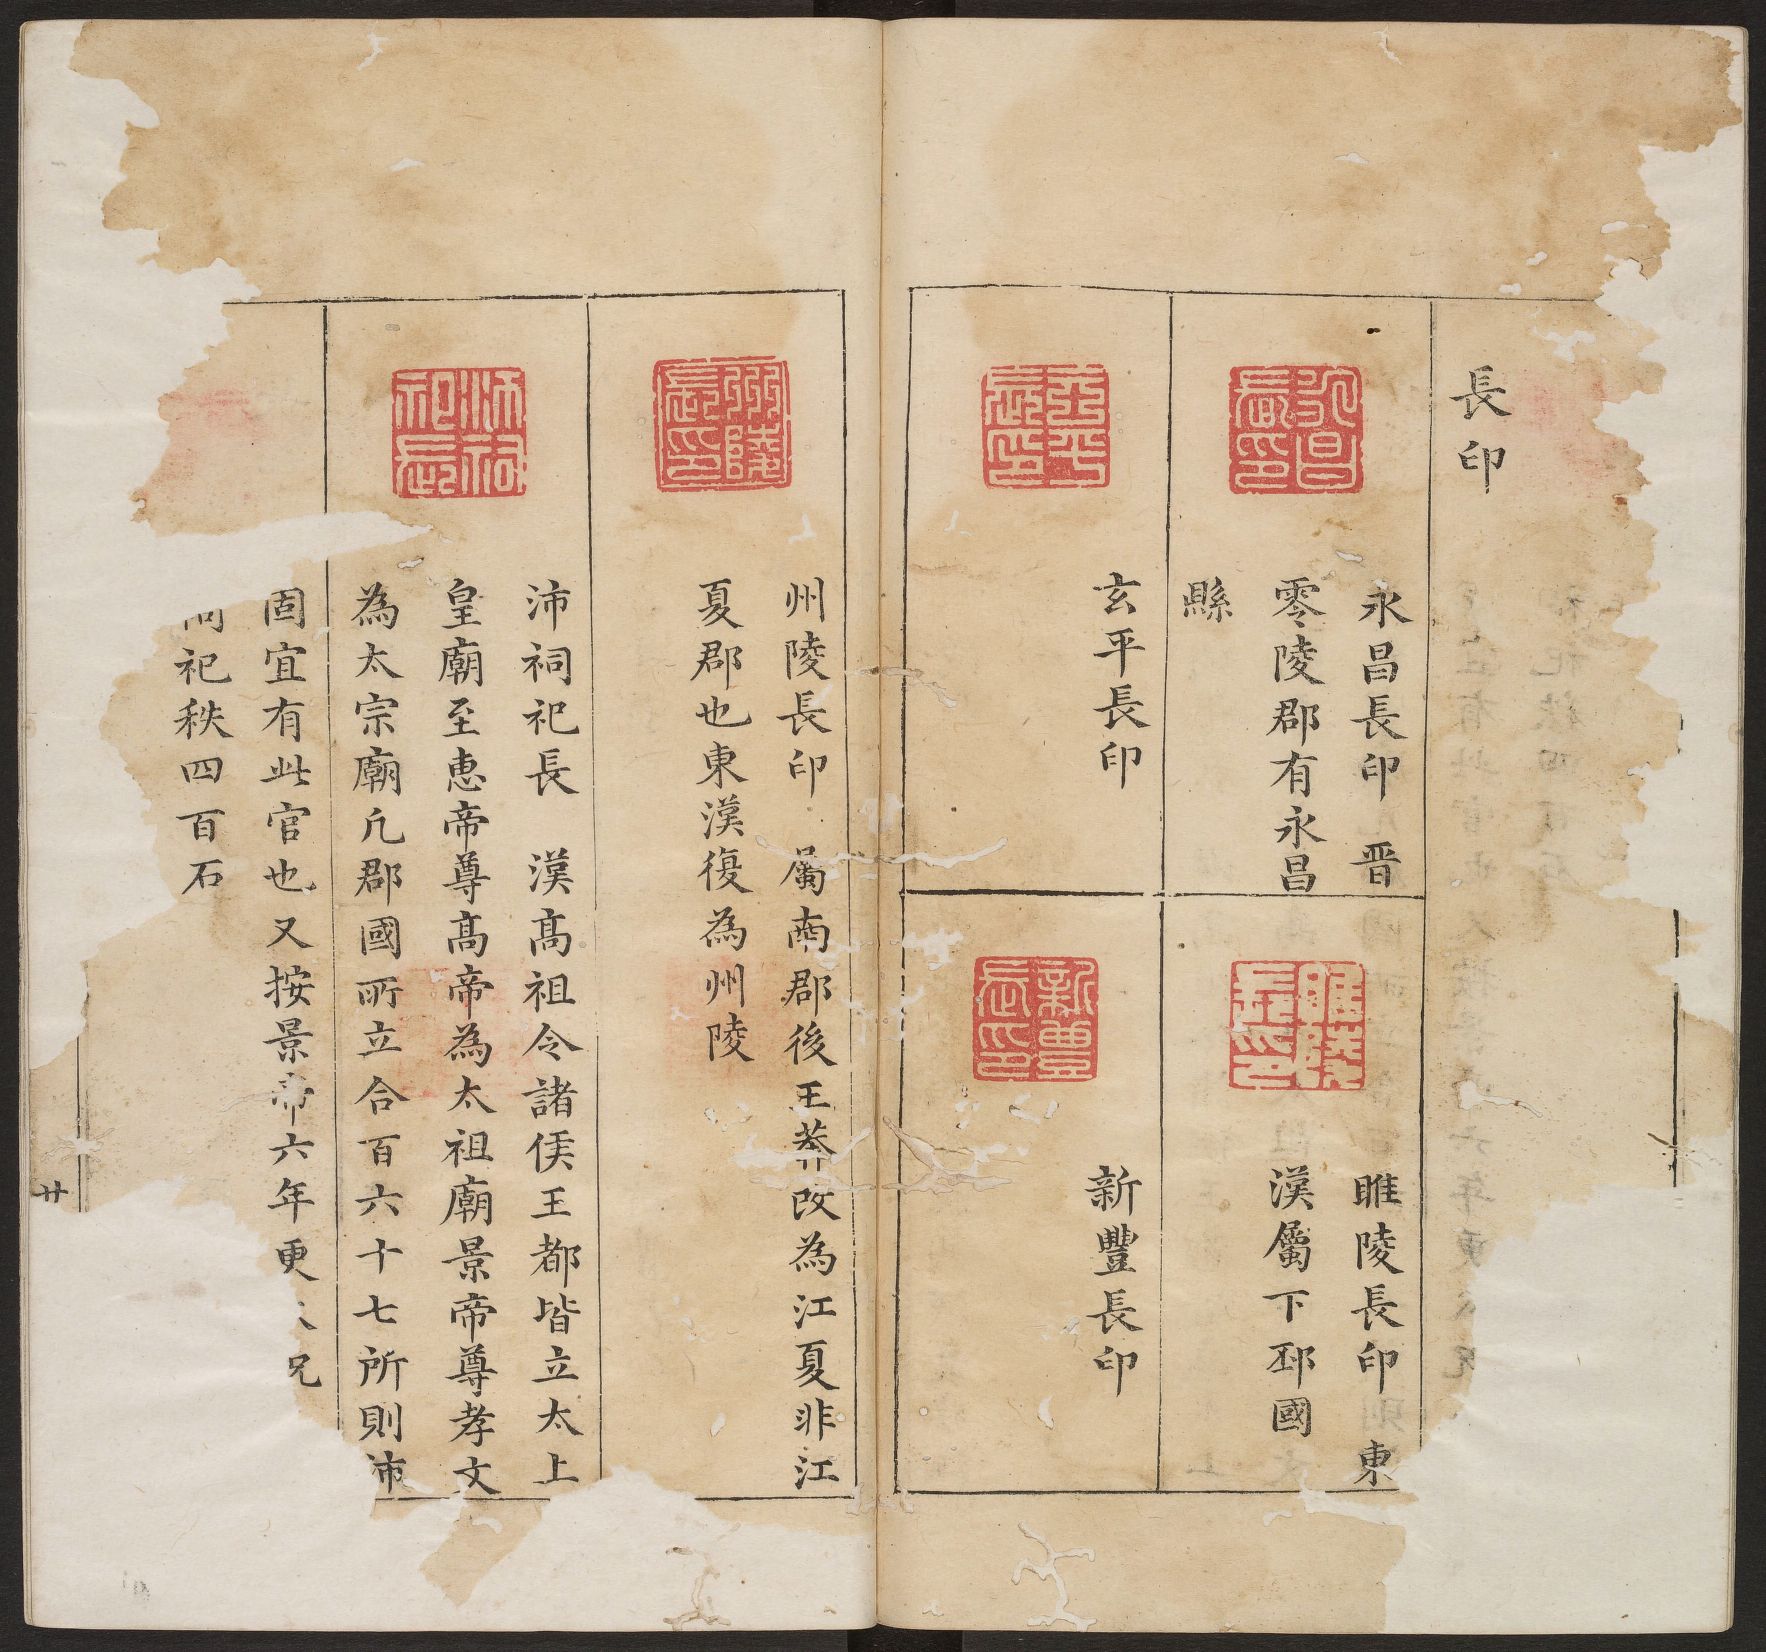 長印
永昌長印 晋
零陵郡有永昌
縣
玄平長印
睢陵長印 東
漢屬下邳國
新豐長印
州陵長印 屬南郡後王莽改為江夏非江
夏郡也東漢復為州陵
沛祠祀長 漢髙祖令諸侯王都皆立太上
皇廟至惠帝尊髙帝為太祖廟景帝尊孝文
為太宗廟凢郡國所立合百六十七所則沛
固宜有此官也又按景帝六年更
祀秩四百石
廿